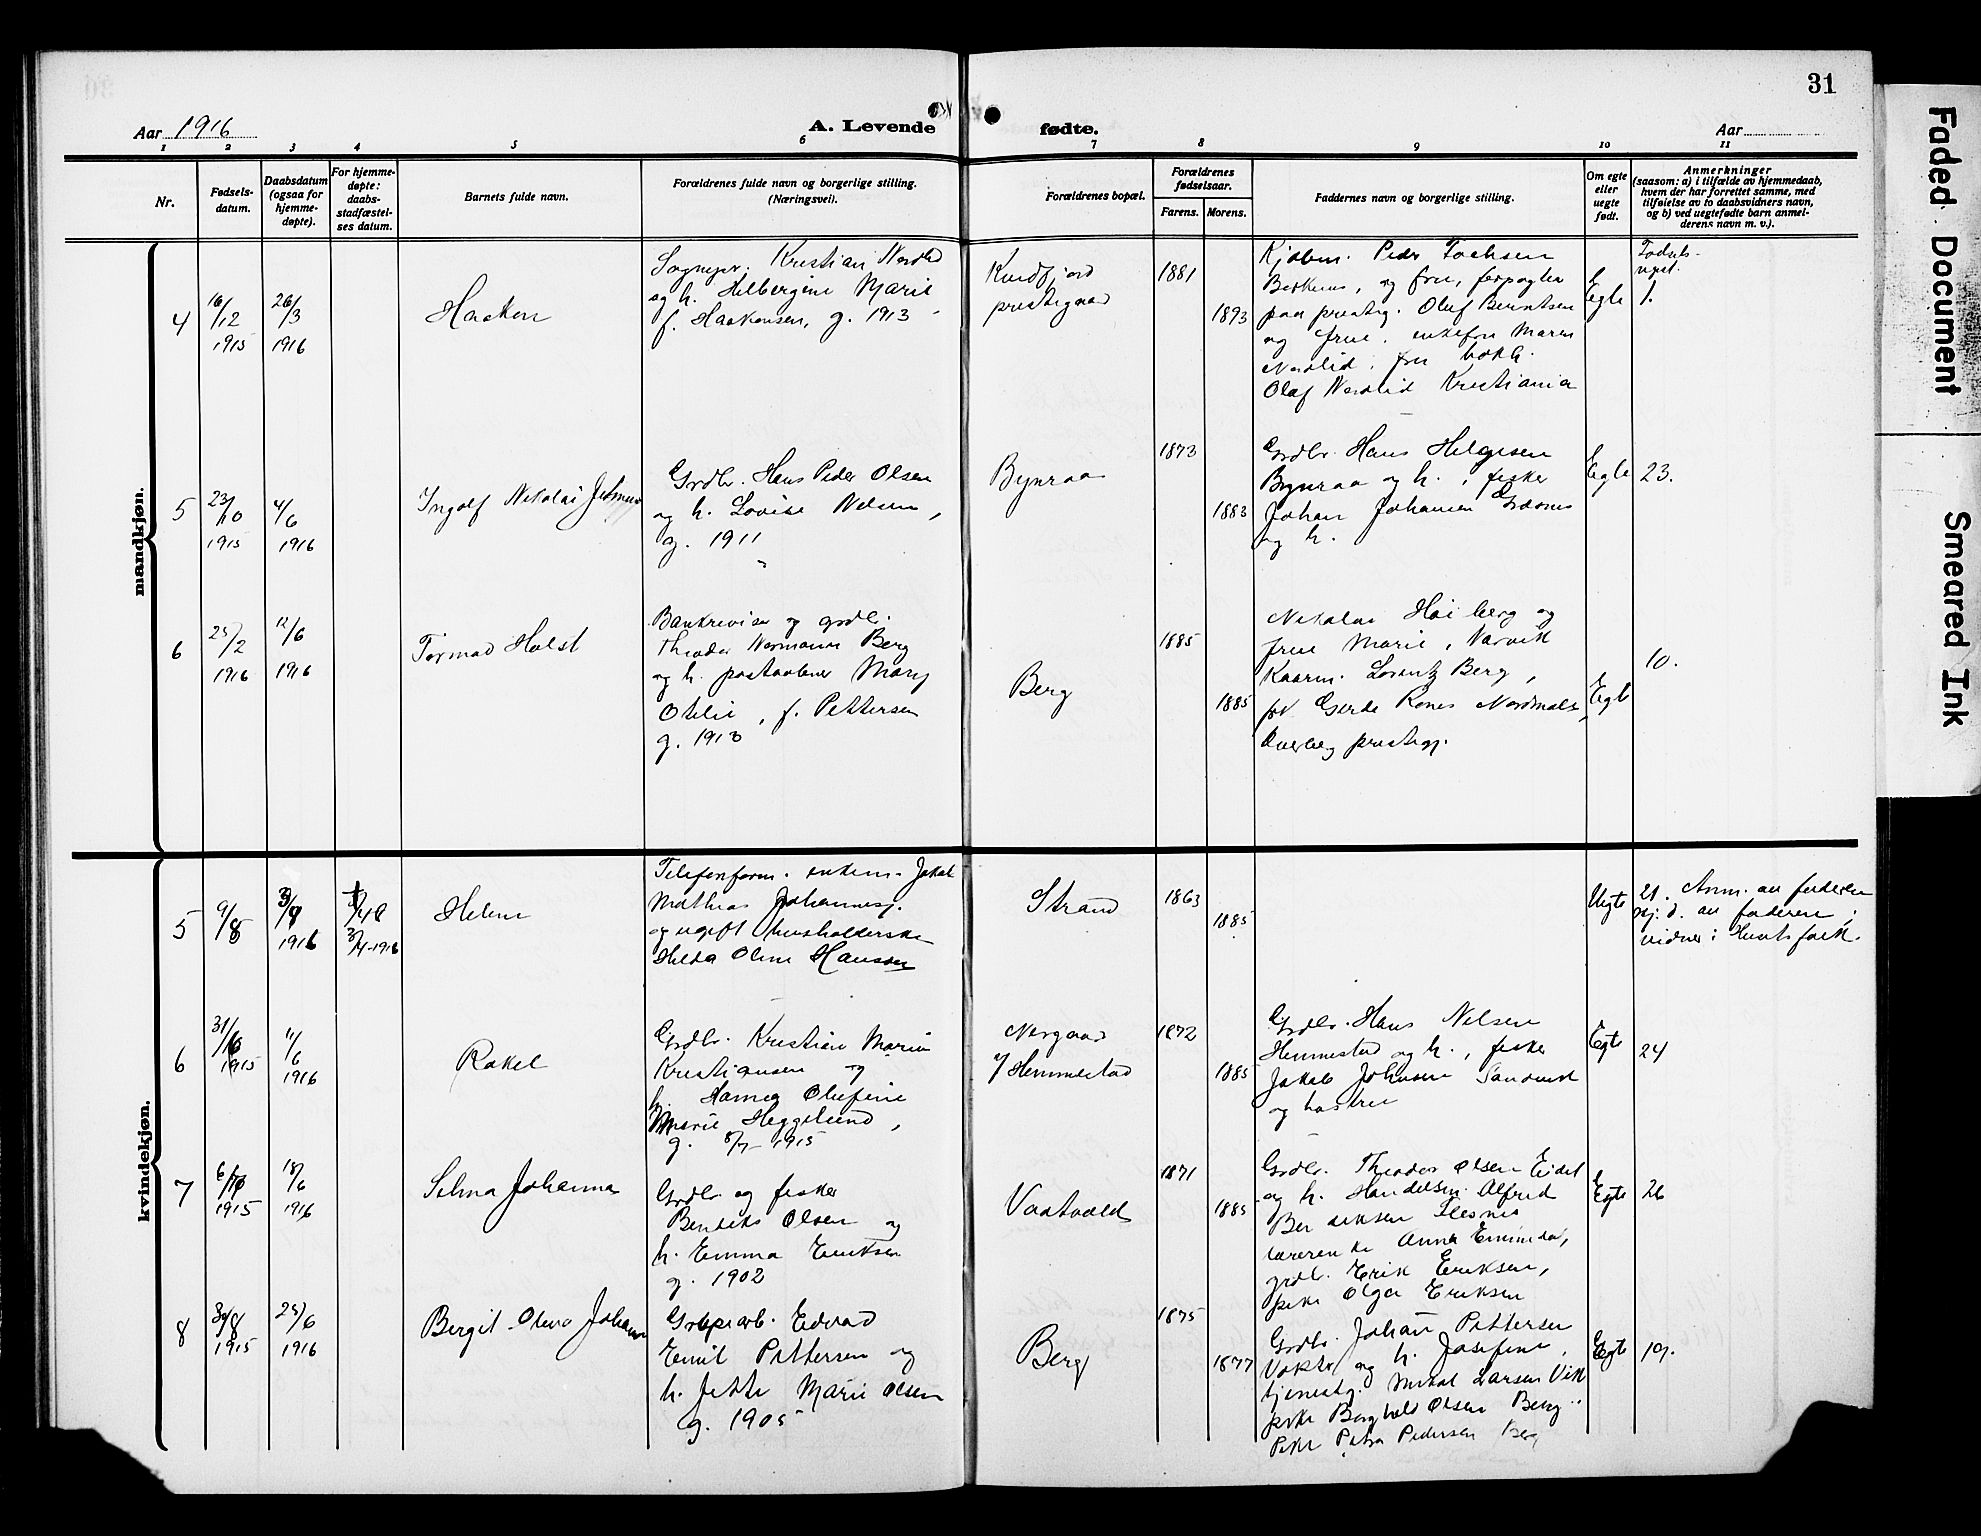 31
Aar 1916
A. Levende fødte.
Aar
1 2 3 4 5 6 7 8 9 10 11
Nr.
Fødsels-
datum.
Daabsdatum
(ogsaa for
hjemme-
døpte).
For hjemme-
døpte:
daabs-
stadfæstel-
ses datum.
Barnets fulde navn.
Forældrenes fulde navn og borgerlige stilling.
(Næringsvei).
Forældrenes bopæl.
Forældrenes
fødselsaar.
Farens. Morens.
Faddernes navn og borgerlige stilling.
Om egte
eller
uegte
født.
Anmerkninger
(saasom: a) i tilfælde av hjemmedaab,
hvem der har forrettet samme, med
tilføielse av to daabsvidners navn,
og b) ved uegtefødte barn anmel-
derens navn m. v.).
mandkjøn.
4
16/12
1915
26/3
1916
Haakon
Sognepr. Kristian Nordlid
og h. Helbergine Marie
f. Haakonsen, g. 1913
Kvedfjord
prestegaard
1881
1893
Kjøbm. Peder
og frue, forpagter
paa presteg. Olaf Berntsen
og frue, enkefru Maren
Nordlid, fru
Olaf Nordlid Kristiania
Egte
Fødsels-
1.
5
23/10
1915
4/6
1916
Ingolf Nikolai
Grdbr. Hans Peder Olsen
og h. Lovise Nilsen,
g. 1911
Bynraa
1873
1883
Grdbr. Hans Helgesen
Bynraa og h., fisker
Johan Johansen
og h.
Egte
23.
6
25/2
1916
12/6
1916
Tormod Holst
Bankrevisor og grdb.
Theodor Normann Berg
og h. postaabner Mary
Otelie, f. Pettersen
g. 1913
Berg
1885
1885
Nikolai Høiberg og
frue Marie, Narvik
Kaarm. Lorentz Berg,
frk Gerda Rones
presteg.
Egte
10.
kvindekjøn.
5
9/8
1916
3/4-1916
Helene
Telefonform. enkem. Jakob
Mathias Johannes
og ugift husholderske
Hilda Oline Hanssen
Strand
1863
1885
Uegte
21. Anm. av faderen
av faderen;
vidner: Husets folk.
6
31/10
1915
11/6
1916
Rakel
Grdbr. Kristian Marin
Kristiansen og
h. Hanna Olufine
Marie Heggelund,
g. 8/7-1915
Nergaard
/ Hemmestad
1872
1885
Grdbr. Hans Nilsen
Hemmestad og h., fisker
Jakob Johnsen Sandvik
og hustru
Egte
24
7
6/10
1915
18/6
1916
Selma Johanna
Grdbr. og fisker
Bendiks Olsen og
h. Emma Eriksen
g. 1902
Vaatvold
1871
1885
Grdbr. Theodor Olsen Eidet
og h. Handelsm. Alfred
Bendiksen Flesnes
lærerinde Anna
grdb. Erik Eriksen,
pike Olga Eriksen
Egte
26
8
30/8
1915
25/6
1916
Bergit Olena
Edvard
Emil Pettersen og
h. Jette Marie Olsen
g. 1905
Berg
1875
1877
Grdbr. Johan Pettersen
Vøkter og h. Josefine,
tjenestg. Mikal Larsen Vik
pike Borghild Olsen Berg
Pike Petra Pedersen Berg
Egte
19.
Faded Document
Smeared Ink